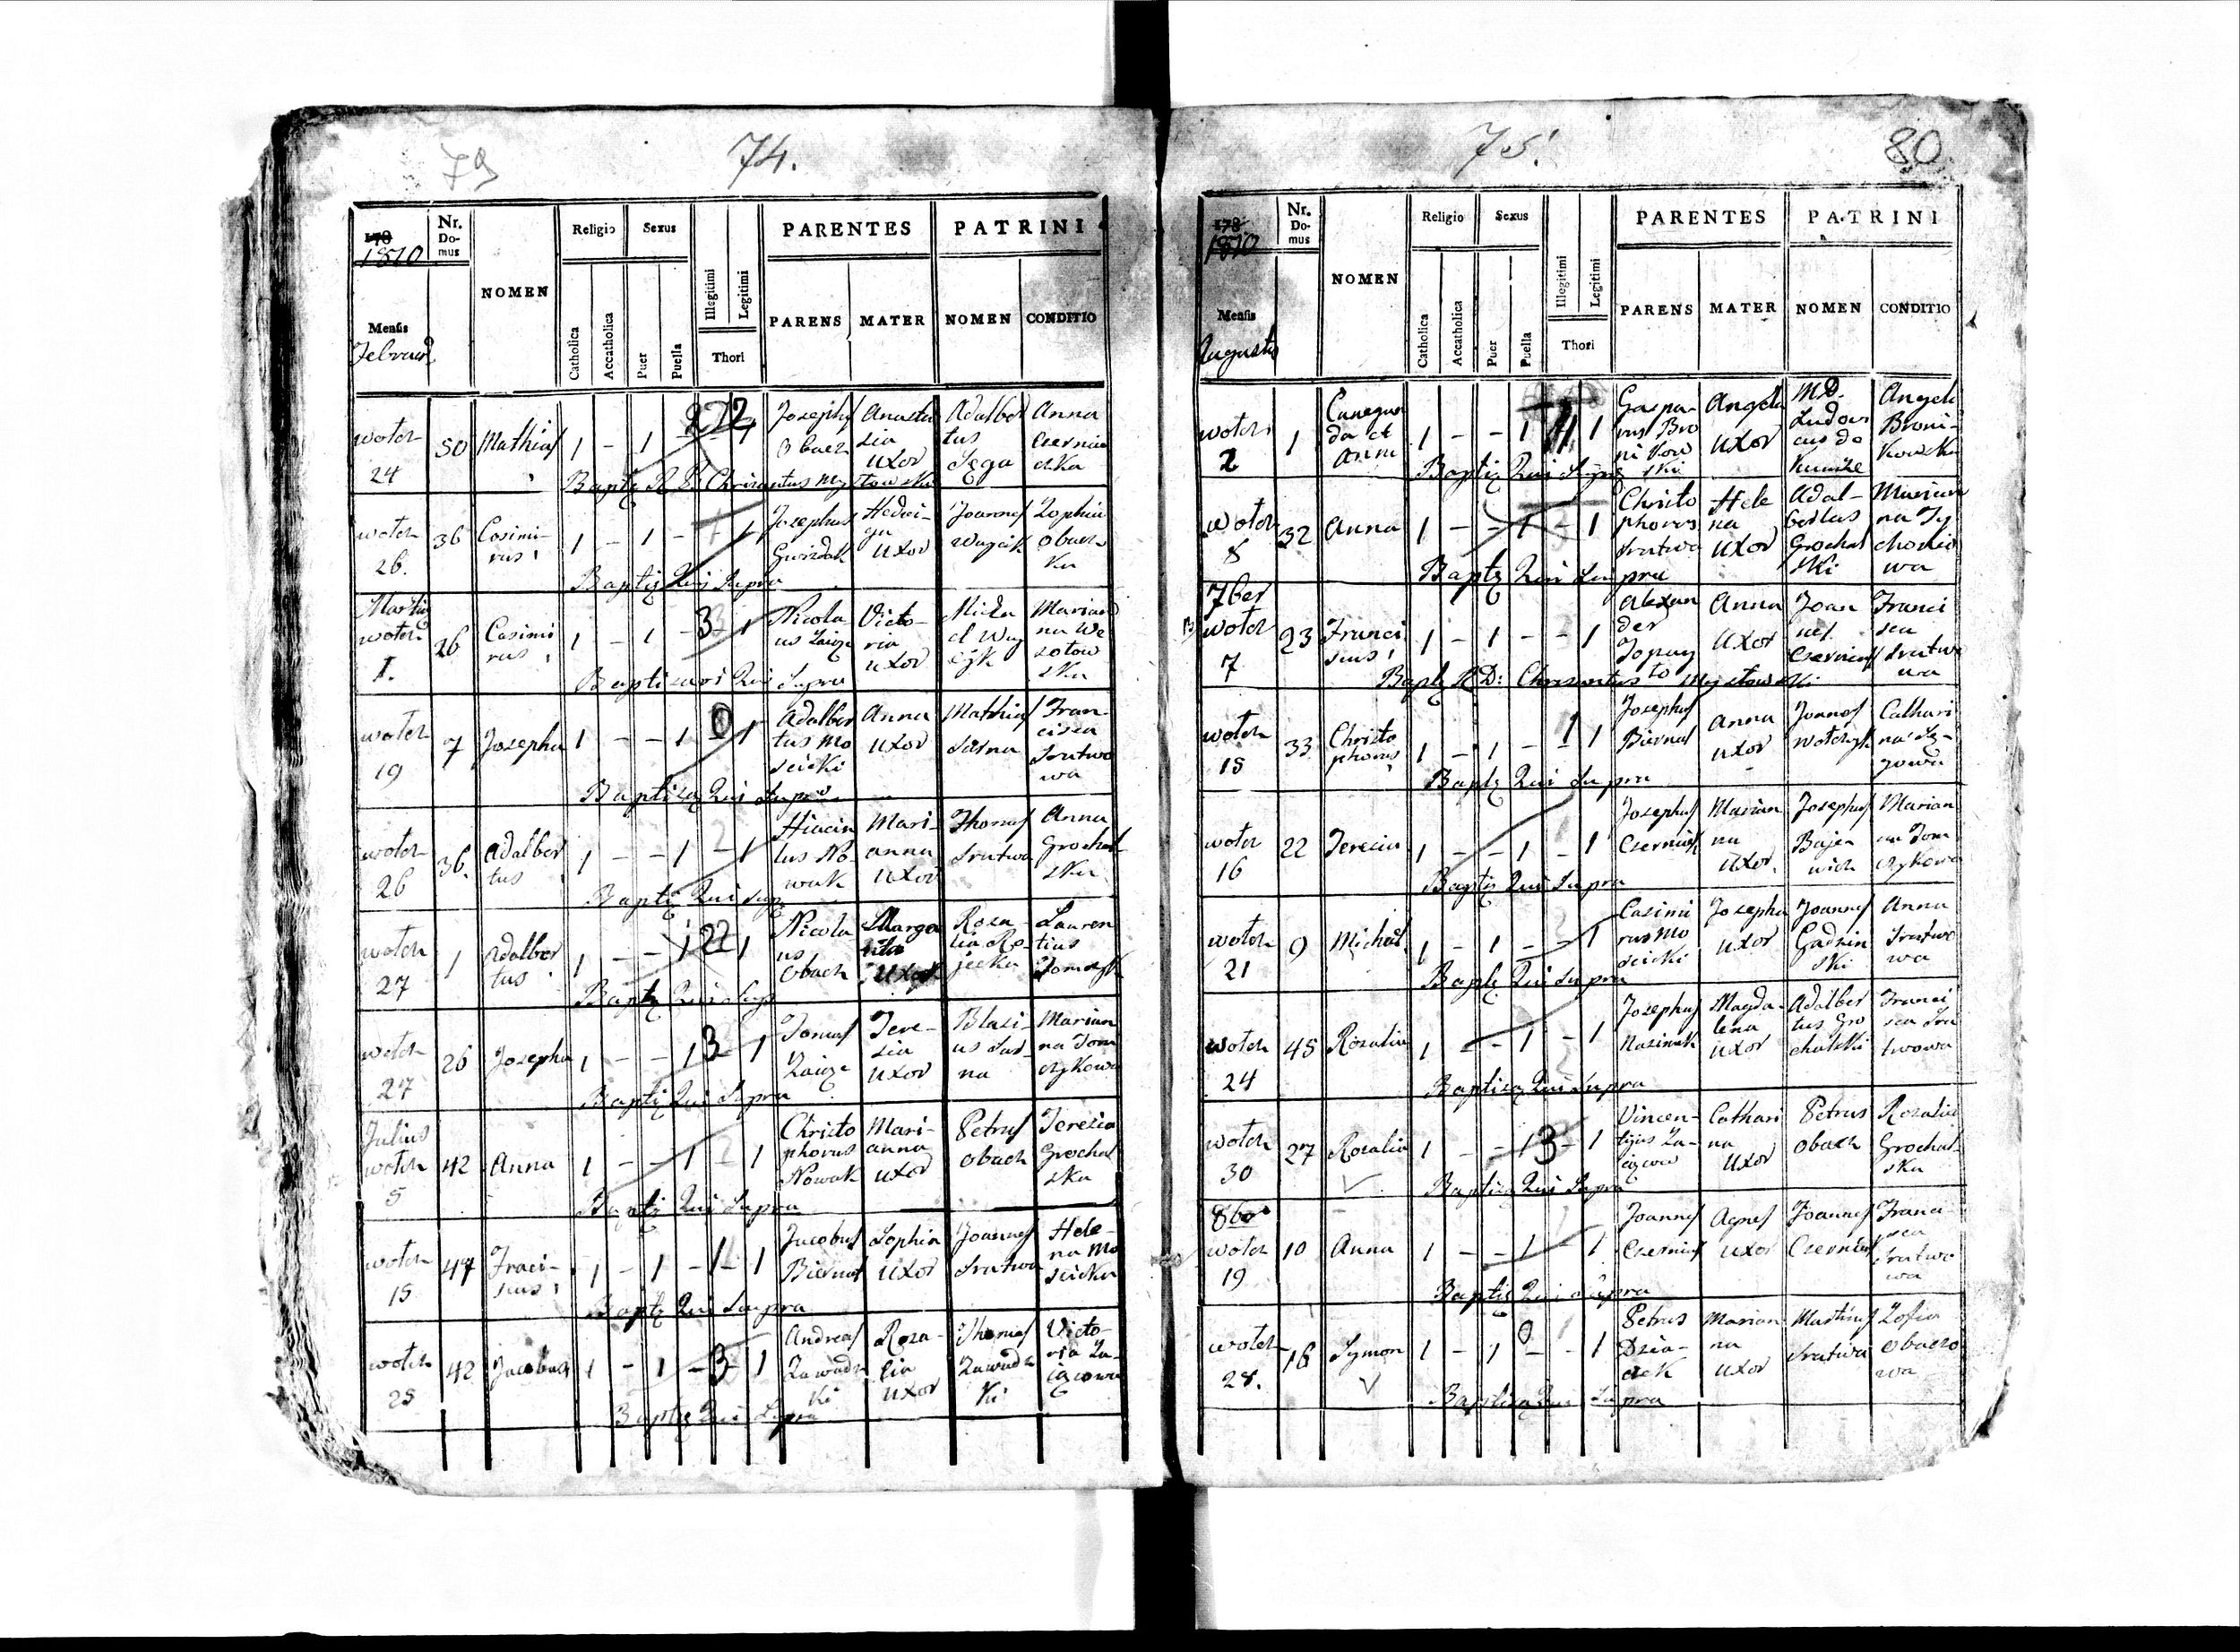 79
74.
178
1810
Nr.
Do-
mus
NOMEN
Religio
Sexus
PARENTES
PATRINI
Mensis
Februar
Catholica
Accatholica
Puer
Puella
Illegitimi
Legitimi
Thori
PARENS
MATER
NOMEN
CONDITIO
woter 24
50
Mathias
1 - 1 - - 1
Josephus Obacz
Anasta sia uxor
Adalber tus Sega
Anna Czernia czka
Baptz R D Chrisantus Mystowski
woter 26.
36
Casimi- rus
1 - 1 - - 1
Josephus Gwizdak
Hedwi- ga uxor
Joannes Wuycik
Zophia Obacz ka
Baptiz Qui Supra
Martius woter 1.
26
Casimi rus
1 - 1 - 3 - 1
Nicola us
Victo- ria uxor
Micha el
Marian na
Baptisavi Qui Supra
woter 19
7
Josepha
1 - - 1 0 1
Adalber tus Mo scicki
Anna uxor
Mathias Sarna
Fran- cisca Srutwo wa
Baptisa Qui Supra
woter 26
36.
Adalber tus
1 - - 1 - 1
Hiacin tus No- wak
Mari- anna uxor
Thomas Srutwa
Anna Grochal ska
Baptiz Qui Sup
woter 27
1
Adalber tus
1 - - 1 22 1
Nicola us Obacz
Marga uxor
Rosa- lia Ro- jecka
Lauren tius Tomczyk
Baptz Qui Sup
woter 27
26
Josepha
1 - - 1 3 1
Tomas
Tere- sia uxor
Blasi- us Sar- na
Marian na Tom czykowa
Baptiz Qui Supra
Julius woter 5
42
Anna
1 - - 1 - 1
Christo phorus Nowak
Mari- anna uxor
Petrus Obacz
Teresia Grochal ska
Baptiz Qui Supra
woter 15
47
Fraci- scus
1 - 1 - 1 - 1
Jacobus Biernat
Sophia uxor
Joannes Srutwa
Hele- na Mo scicka
Baptz Qui Supra
woter 25
42
Jacobus
1 - 1 - 3 - 1
Andreas Zawadz ki
Rosa- lia uxor
Thomas Zawadz ki
Victo- ria
Baptiz Qui Supra
75.
80
178
1810
Nr.
Do-
mus
NOMEN
Religio
Sexus
PARENTES
PATRINI
Mensis
Augustus
Catholica
Accatholica
Puer
Puella
Illegitimi
Legitimi
Thori
PARENS
MATER
NOMEN
CONDITIO
woter 2
1
Cunegun da et Anna
1 - - 1 1
Gaspa- rus Bro nikow ski
Angela uxor
M.D. Ludovi cus de
Angela Broni- kowska
Baptiz Qui Supra
woter 8
32
Anna
1 - - 1 - 1
Christo phorus Srutwa
Hele na uxor
Adal- bertus Grochal ski
Marian na
Baptz Qui Supra
7ber woter 7
23
Franci scus
1 - 1 - - 1
Alexan der
Anna uxor
Joan nes Czerniak
Franci sca Srutwo wa
Baptz R D: Chrisantus Mystowski
woter 15
33
Christo phorus
1 - 1 - 1 1
Josephus Biernat
Anna uxor
Joannes
Cathari na
Baptz Qui Supra
woter 16
22
Teresia
1 - - 1 - 1
Josephus Czerniak
Marian na uxor.
Josephus
Marian na Tom czykowa
Baptiz Qui Supra
woter 21
9
Michael
1 - 1 - - 1
Casimi rus Mo scicki
Josepha uxor
Joannes
Anna Srutwo wa
Baptz Qui Supra
woter 24
45
Rosalia
1 - - 1 - 1
Josephus
Magda- lena uxor
Adalber tus Gro chalski
Franci sca Sru twowa
Baptiza Qui Supra
woter 30
27
Rosalia
1 - - 1 3 - 1
Vincen- tius
Cathari na uxor
Petrus Obacz
Rosalia Grochal- ska
Baptiza Qui Supra
8ber woter 19
10
Anna
1 - - 1 - 1
Joannes Czerniak
Agnes uxor
Joannes Czerniak
Franci sca Srutwo wa
Baptiz Qui Supra
woter 28.
16
Symon
1 - 1 0 - 1
Petrus
Marian na uxor
Martinus Srutwa
Zofia Obaczo wa
Baptiza Qui Supra